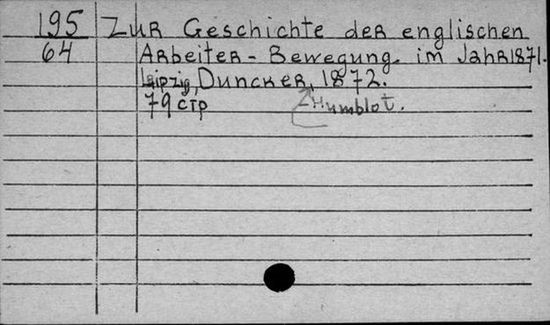 195 Zur Geschichte der englischen
64 Arbeiter-Bewegung im Jahr 1871.
Leipzig, Duncker, 1872.
79 стр Humblot.